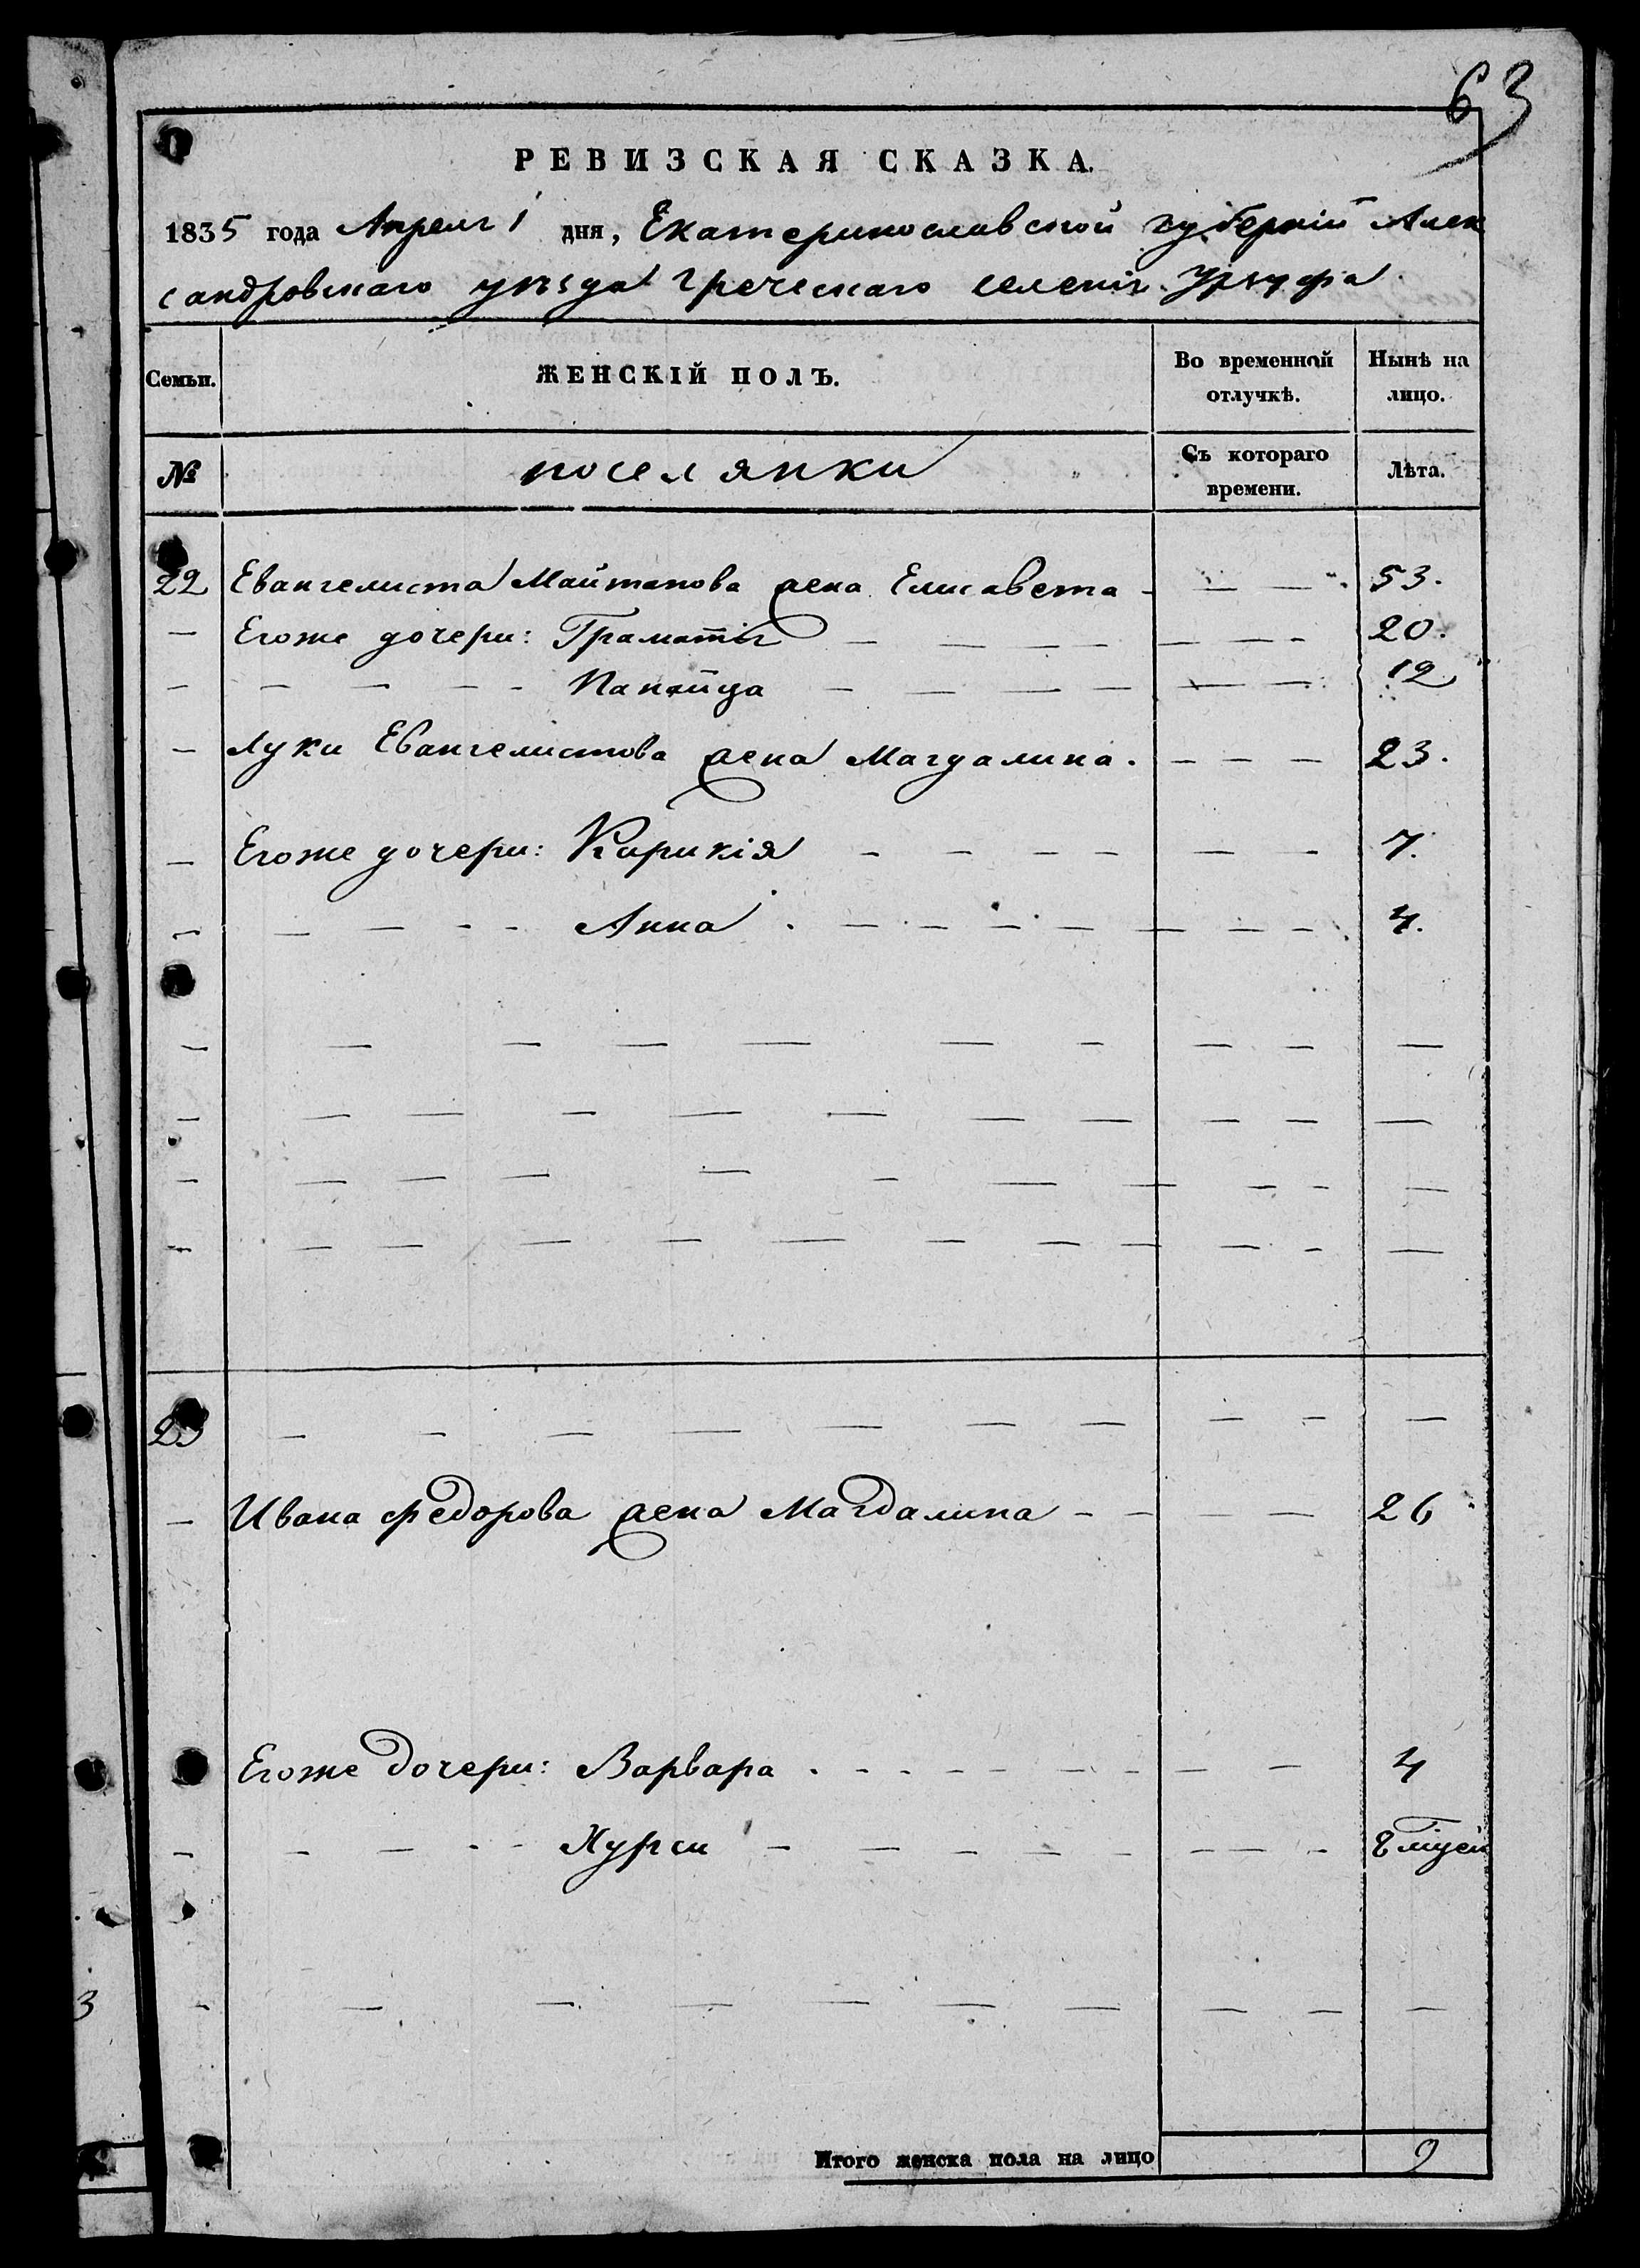 63
РЕВИЗСКАЯ СКАЗКА.
1835 года Апреля 1 дня, Екатеринославской губерніи Алек
сандровскаго уѣзда Греческаго селенія Урзуфа
Семьи. ЖЕНСКІЙ ПОЛЪ. Во временной отлучкѣ. Нынѣ на лицо.
№ поселянки Съ котораго времени. Лѣта.
22 Евангелиста Майтопова жена Елисавета - - - 53.
- Егоже дочери: Граматія - - - - - - - 20.
- - - - - Папаица - - - - - - - 12
- Луки Евангелистова жена Магдалина. - - - 23.
- Егоже дочери: Кирикія - - - - - - 7.
- - - - - Анна . - - - - - - - 4.
23 - - - - - - - - - -
- Ивана Федорова жена Магдалина - - - - 26
Егоже дочери: Варвара . - - - - - - - - 4
- - - - - Хурси - - - - - - - - 8 мѣцей
3
Итого женска пола на лицо 9